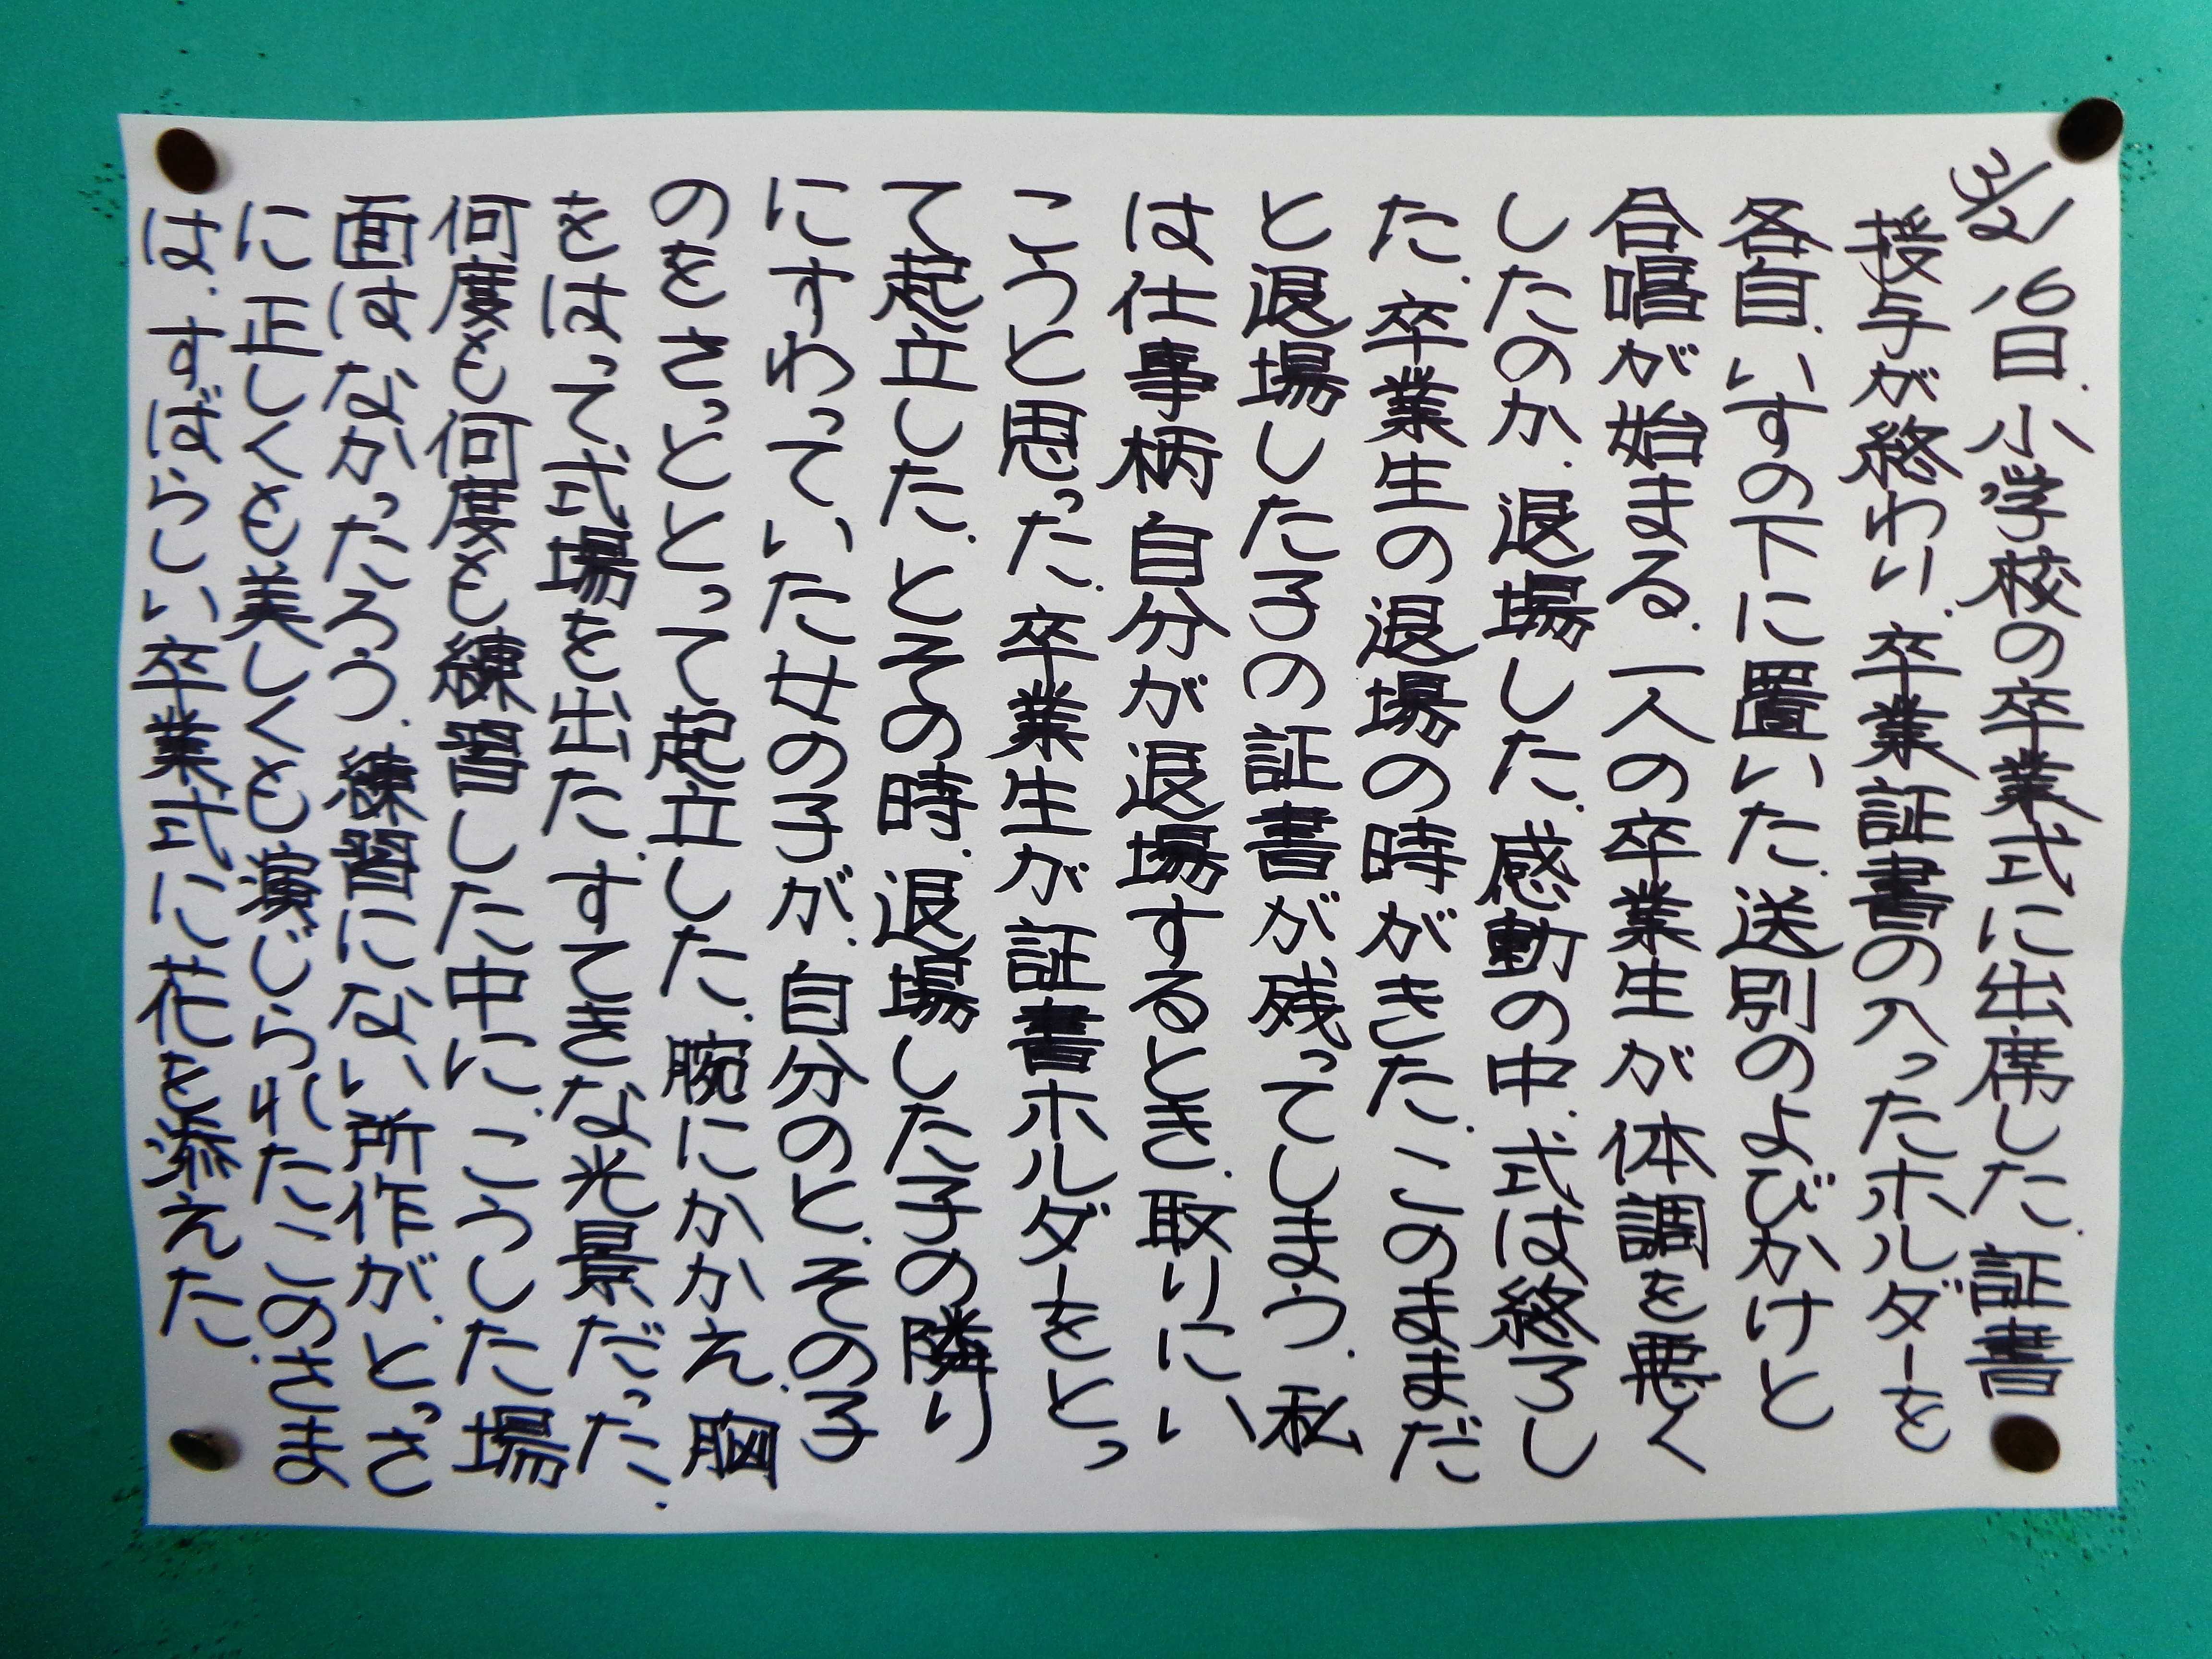 3/21 16日.小学校の卒業式に出席した.証書
授与が終わり.卒業証書の入ったホルダーを
各自.いすの下に置いた.送別のよびかけと
合唱が始まる.一人の卒業生が体調を悪く
したのか.退場した.感動の中.式は終了し
た.卒業生の退場の時がきた.このままだ
と退場した子の証書が残ってしまう.私
は仕事柄自分が退場するとき.取りにい
こうと思った.卒業生が証書ホルダーをとっ
て起立した.とその時.退場した子の隣り
にすわっていた女の子が.自分のと.その子
のをさっととって起立した.腕にかかえ.胸
をはって式場を出た.すてきな光景だった.
何度も何度も練習した中に.こうした場
面はなかったろう.練習にない所作が.とっさ
に正しくも美しくも演じられたこのさま
は.すばらしい卒業式に花を添えた.